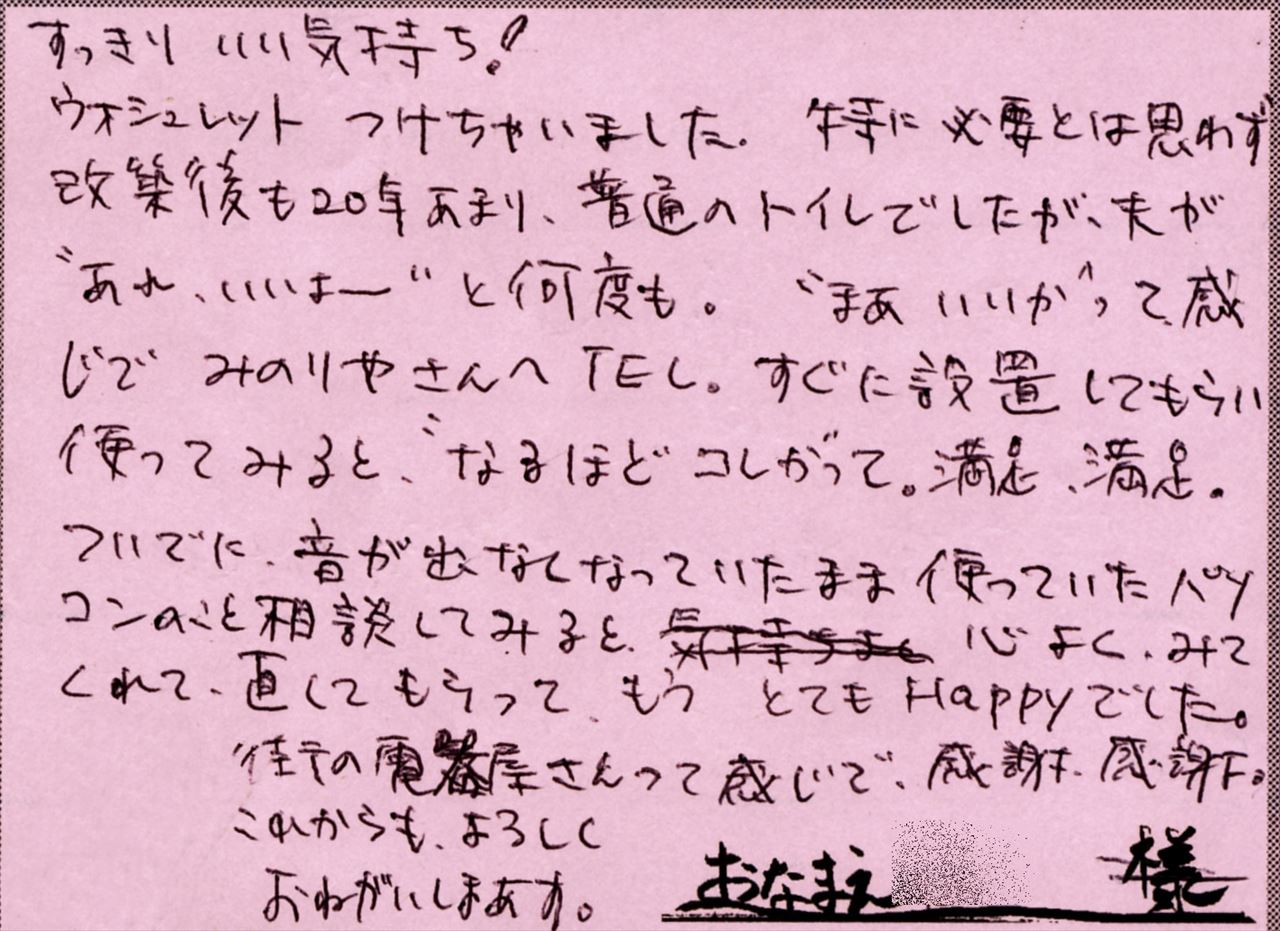 すっきり いい気持ち!
ウォシュレット つけちゃいました。 特に 必要とは思わず
改築後も20年あまり、普通のトイレでしたが、夫が
"あれ、いいよー" と何度も。 "まあ いいか"って感
じで みのりやさんへ TEL。すぐに設置してもらい
使ってみると、"なるほど コレがって。満足、満足。
ついでに、音が出なくなっていたまま使っていたパソ
コンのこと相談してみると、 心よく、みて
くれて、直してもらって、もう とてもHappyでした。
街の電器屋さんって感じで、感謝、感謝。
これからも、よろしく
おねがいしまあす。
おなまえ 様